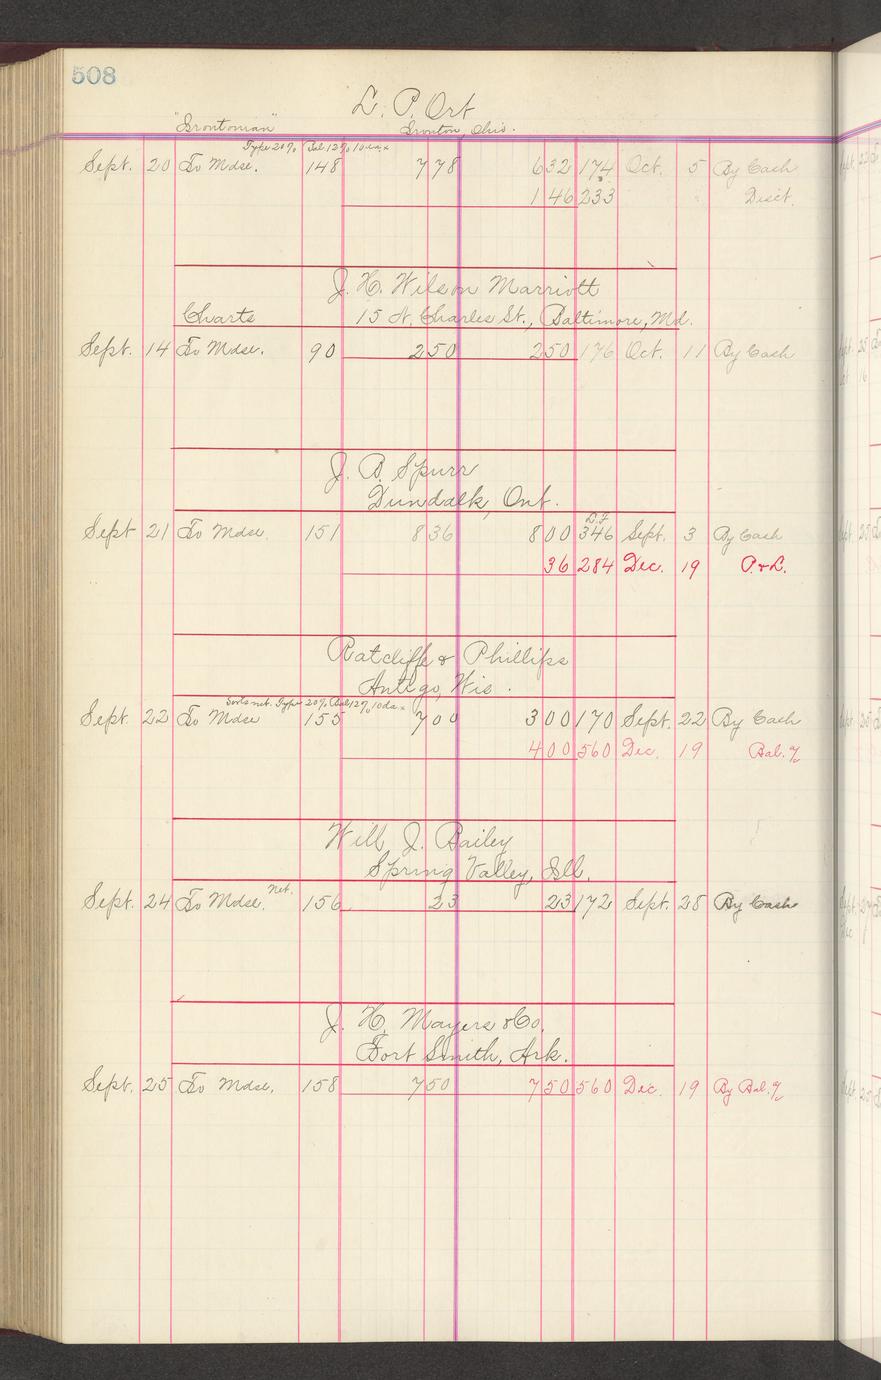 508
L. P. Ort
"Irontonian" Ironton, Ohio.
Type 20% Bal 12% 10 da. x
Sept. 20 To Mdse. 148 7 78 6 32 174 Oct. 5 By Cash
1 46 233 " Disct.
J. H. Wilson Marriott
Charts 15 N. Charles St., Baltimore, Md.
Sept. 14 To Mdse. 90 2 50 2 50 176 Oct. 11 By Cash
J. B. Spurr
Dundalk, Ont.
L.F.
Sept 21 To Mdse. 151 8 36 8 00 346 Sept. 3 By Cash
36 284 Dec. 19 P. & L.
Ratcliffe & Phillips
Antigo, Wis.
Sorts net. Type 20% Bal 12% 10 da. x
Sept. 22 To Mdse 155 7 00 3 00 170 Sept. 22 By Cash
4 00 560 Dec. 19 Bal.
Will J. Bailey
Spring Valley, Ill.
Sept. 24 To Mdse. net. 156 23 23 172 Sept. 28 By Cash
J. H. Mayers & Co.
Fort Smith, Ark.
Sept. 25 To Mdse. 158 7 50 7 50 560 Dec. 19 By Bal.